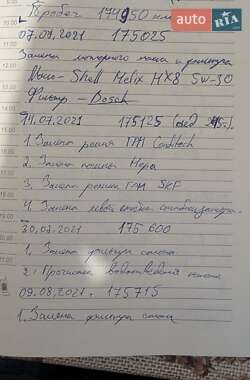 AUTO RIA
Пробег 174950 км
07.07.2021 175025
Замена моторного масла и фильтра
Shell Helix HX8 5w-30
Фильтр - Bosch
14.07.2021 175125
1. Замена ремня ГРМ Contitech
2. Замена помпы Hepu
3. Замена ролики ГРМ SKF
4. Замена левой стойки стабилизатора
30.07.2021 175 600
1. Замена фильтра салона
2. Прочистка
09.08.2021. 175715
1. Замена фильтра салона